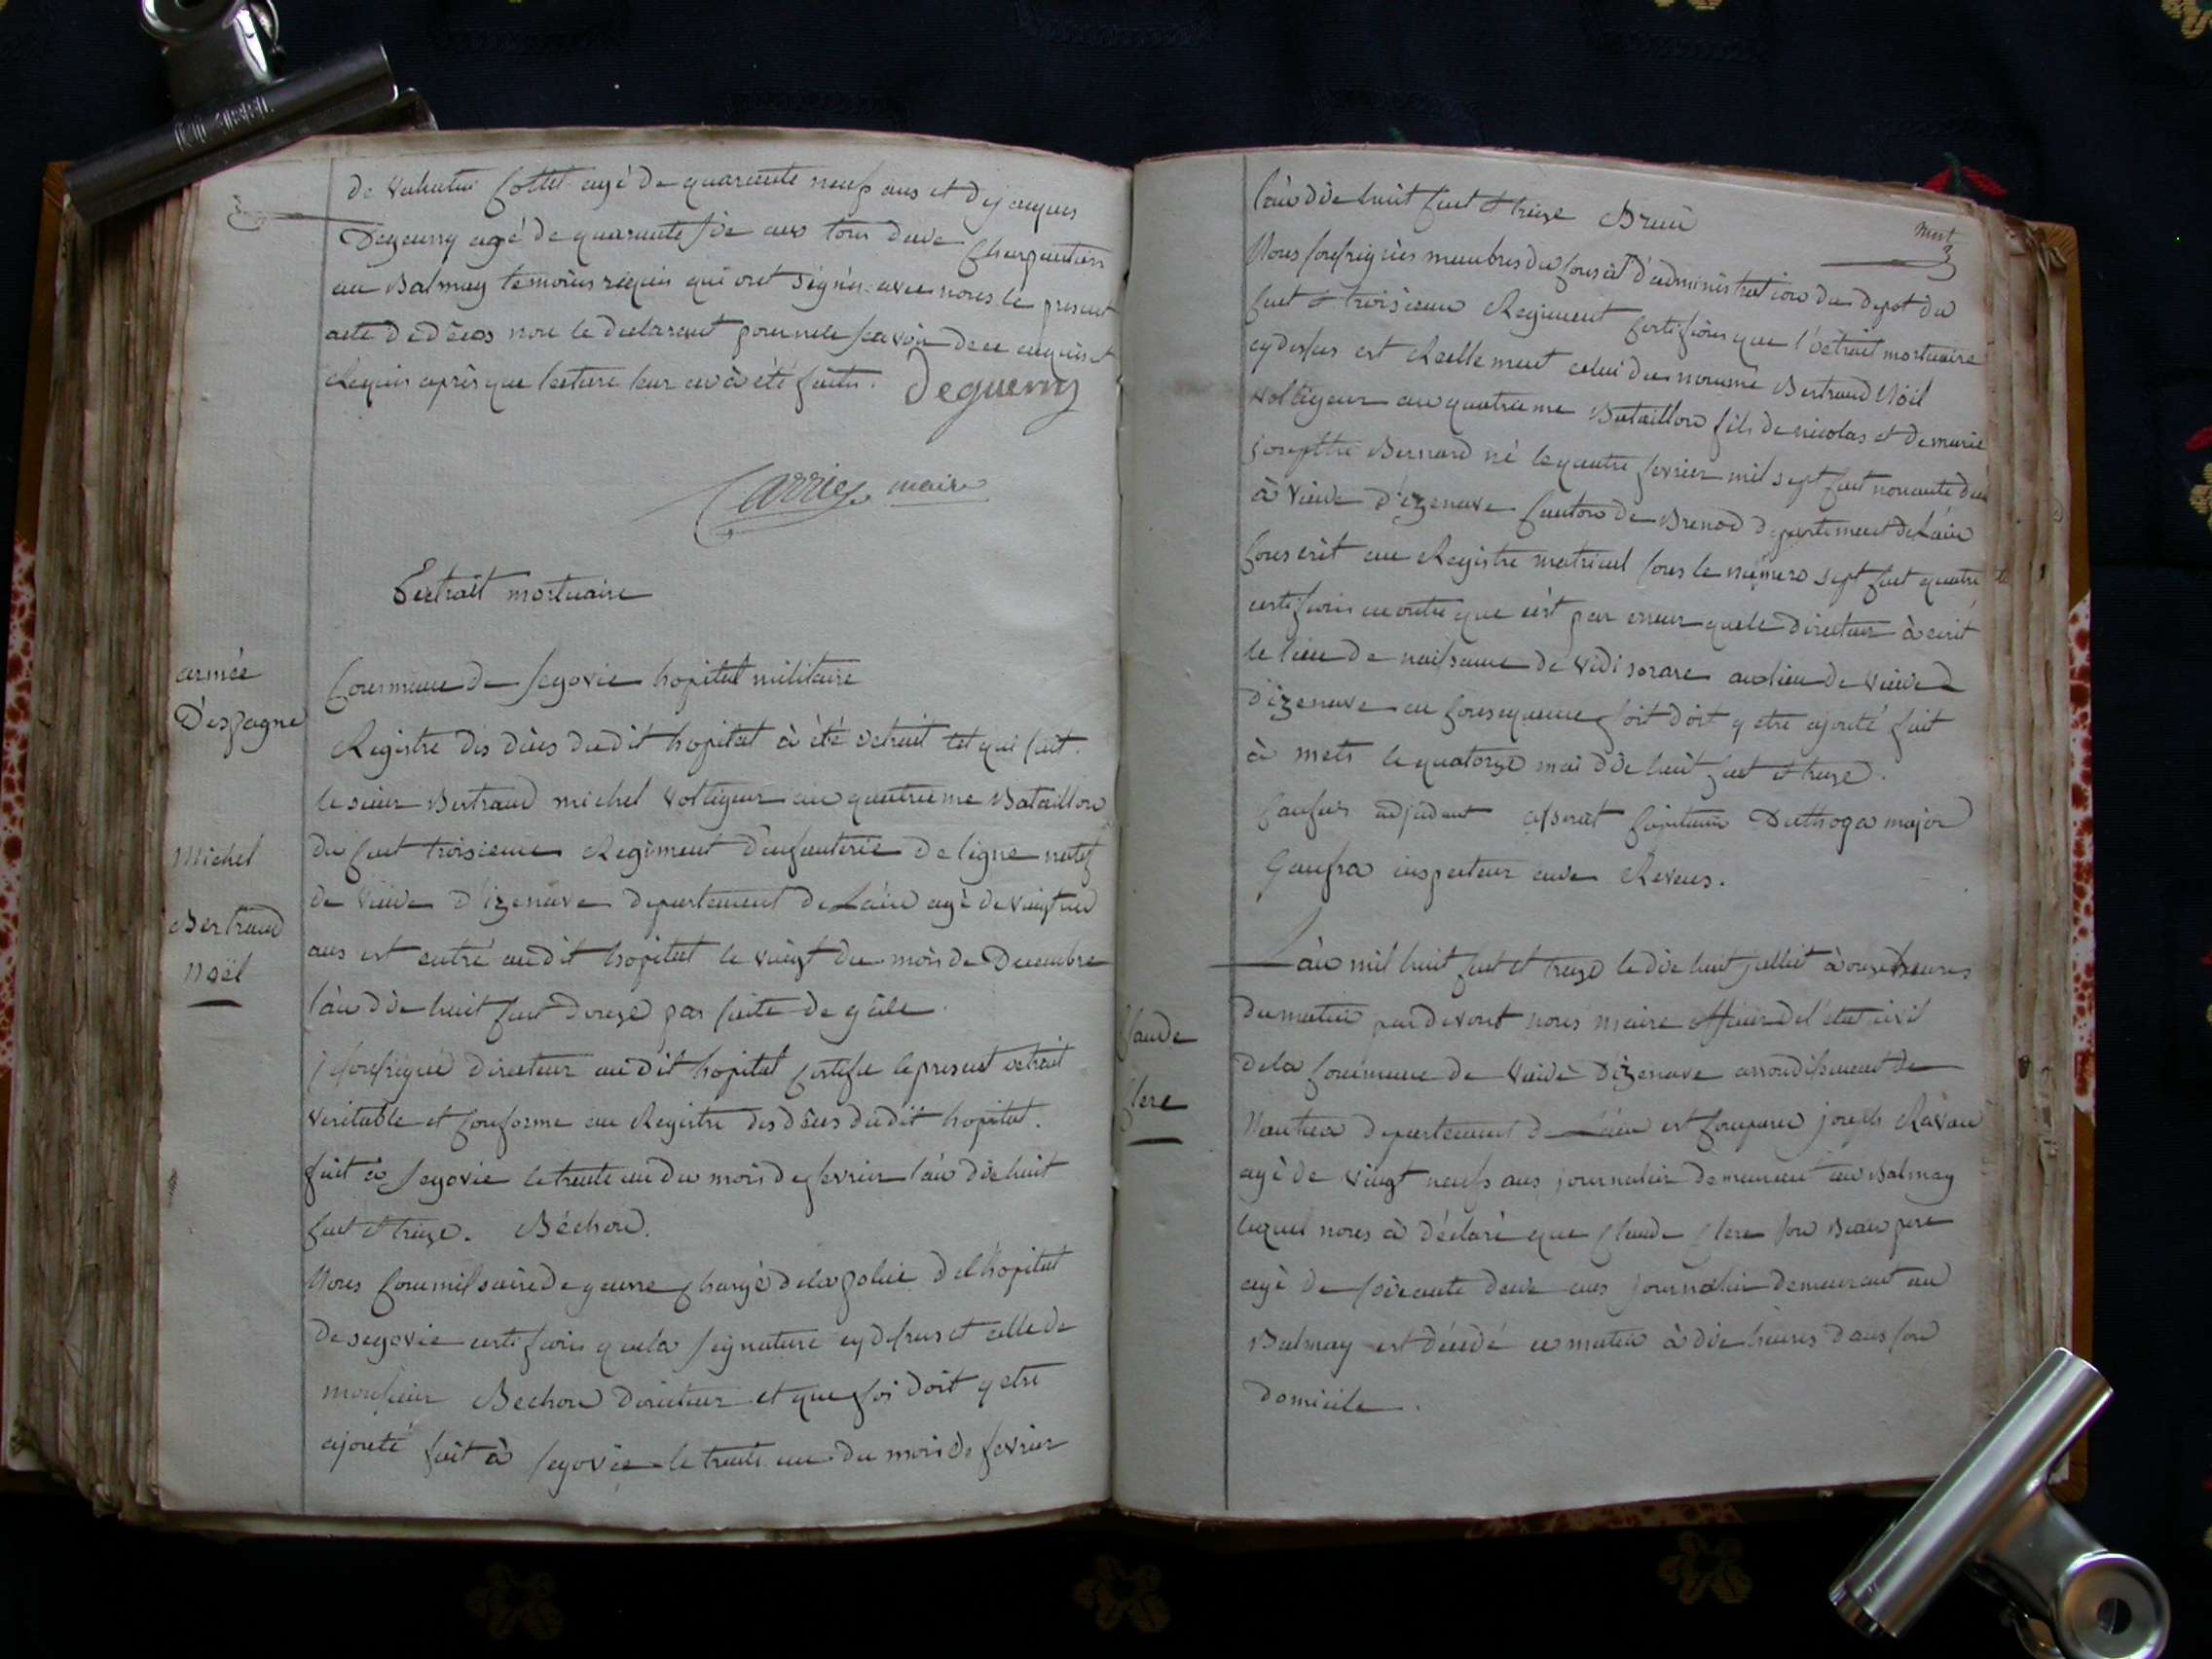 de Valentin Cottet agé de quarente neufs ans et de jacques
Degeurry agé de quarente six ans tous deux Charpantiers
au Balmay temoins requis qui ont signés avec nous le present
acte de dêces non le declarent pour ne le scavoir de ce enquis et
Requis après que lecture leur en à été faite. Deguerry
Carrier maire
Extrait mortuaire
armée
D'espagne
Commune de segovie hopital militaire
Registre des dêces dudit hopital à été extrait cet qui suit.
le sieur Bertrand michel voltigeur au quatrieme Bataillon
Michel
Bertrand
Noël
du cent troisieme Regiment d'infanterie de ligne natif
de vieux d'izenave departement de Lain agé de vingt un
ans est entré audit hopital le vingt du mois de Decembre
l'an dix huit cent douze par suite de
j soussigné directeur au dit hopital certifie le present extrait
veritable et conforme au Registre des dêces du dit hopital.
fait à segovie le trente un du mois de fevrier l'an dix huit
cent et treize. Béchon.
Nous commissaire de guerre chargé de la police de l'hopital
de segovie certifions que la signature cy dessus et celle de
monsieur Bechon directeur et que foi doit y etre
ajouté fait à segovie le trente un du mois de fevrier
l'an dix huit cent et treize Brun
Nous soussignés membres du conseil d'administration du depot du
cent et troisieme Regiment certifions que l'extrait mortuaire
cy dessus est Reellement celui du nommé Bertrand Noël
voltigeur au quatrieme Bataillon fils de nicolas et de marie
josephte Bernard né le quatre fevrier mil sept cent nonante deux
à vieux d'izenave canton de Brenod departement de Lain
conscrit au Registre matricul sous le numero sept cent quatre
certifions en outre que c'est par erreur que le directeur à ecrit
le lieu de naissance de vidisorare au lieu de vieux d
d'izenave en consequence foit doit y etre ajouté fait
à mets le quatorze mai dix huit cent et treize.
adjudant capitaine Duthoga major
inspecteur aux Revues.
L'an mil huit cent et treize le dix huit juillet à onze heures
du matin par devant nous maire officier de l'état civil
Claude
Clere
de la commune de vieux d'izenave arrondissement de
Nantua departement de Lain est comparu joseph Ravau
agé de vingt neufs ans journalier demeurant au Balmay
lequel nous à déclaré que Claude Clere son Beau pere
agé de soixante deux ans journalier demeurant au
Balmay est décédé ce matin à dix heures dans son
domicile.